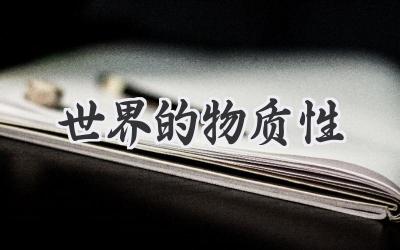 世界的物质性